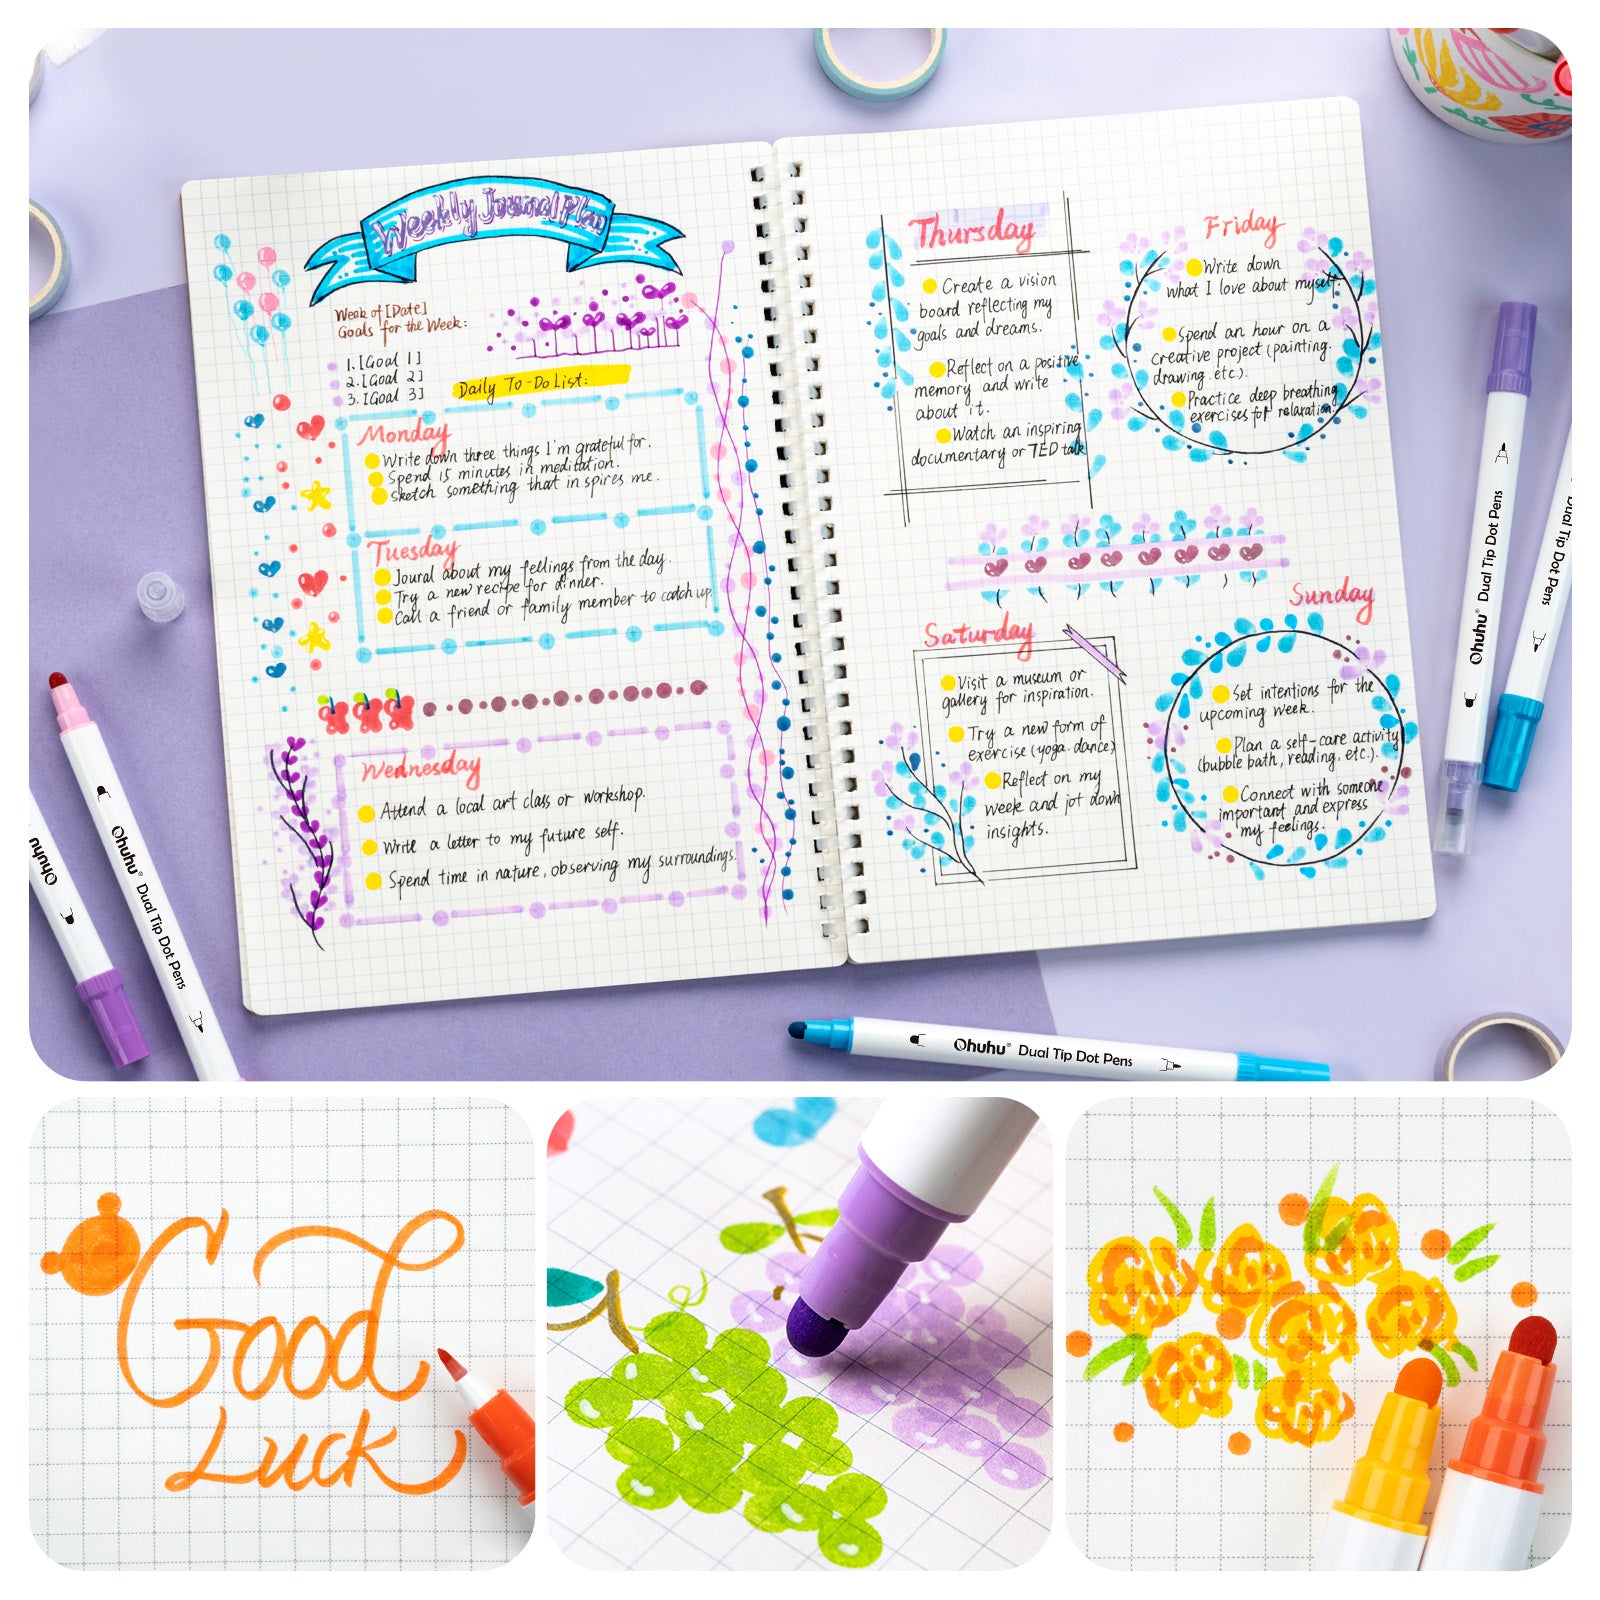 Weekly Jounal Plan
Week of [Date]
Goals for the Week:
1. [Goal 1]
2. [Goal 2]
3. [Goal 3]
Daily To-Do List:
Monday
Write down three things I'm grateful for.
Spend 15 minutes in meditation.
Sketch something that inspires me.
Tuesday
Joural about my feelings from the day.
Try a new recipe for dinner.
Call a friend or family member to catch up.
Wednesday
Attend a local art class or workshop.
Write a letter to my future self.
Spend time in nature, observing my surroundings.
Thursday
Create a vision
board reflecting my
goals and dreams.
Reflect on a positive
memory and write
about it.
Watch an inspiring
documentary or TED talk
Friday
Write down
what I love about myself.
Spend an hour on a
creative project (painting.
drawing. etc.).
Practice deep breathing
exercises for relaxation.
Saturday
Visit a museum or
gallery for inspiration.
Try a new form of
exercise (yoga. dance)
Reflect on my
week and jot down
insights.
Sunday
Set intentions for the
upcoming week.
Plan a self-care activity
(bubble bath, reading. etc.).
Connect with someone
important and express
my feelings.
Ohuhu® Dual Tip Dot Pens
Dual Tip Dot Pens
Ohuhu
Ohuhu® Dual Tip Dot Pens
Ohuhu® Dual Tip Dot Pens
Good
Luck